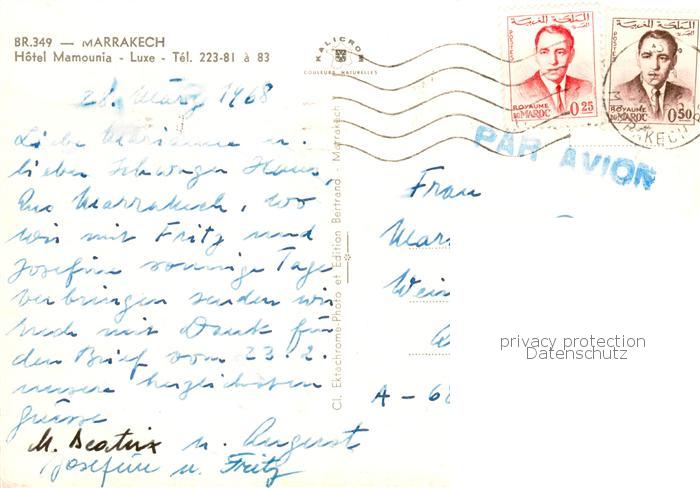 BR.349 — MARRAKECH
Hôtel Mamounia - Luxe - Tél. 223-81 à 83
KALICROM
COULEURS NATURELLES
28. März 1968
Liebe Marianne u.
lieber Schwager Hans,
Aus Marrakech, wo
wir mit Fritz und
Josefine sonnige Tage
verbringen senden wir
Euch mit Dank für
den Brief vom 23.2.
unsere herzlichsten
Grüsse
M. Beatrix u. August
Josefine u. Fritz
Cl. Ektachrome-Photo et Edition Bertrand - Marrakech
المملكة المغربية
POSTES
ROYAUME
DU MAROC
0.25
المملكة المغربية
ROYAUME
DU MAROC
0.50
PAR AVION
Frau
Mar
Wein
A - 68
privacy protection
Datenschutz